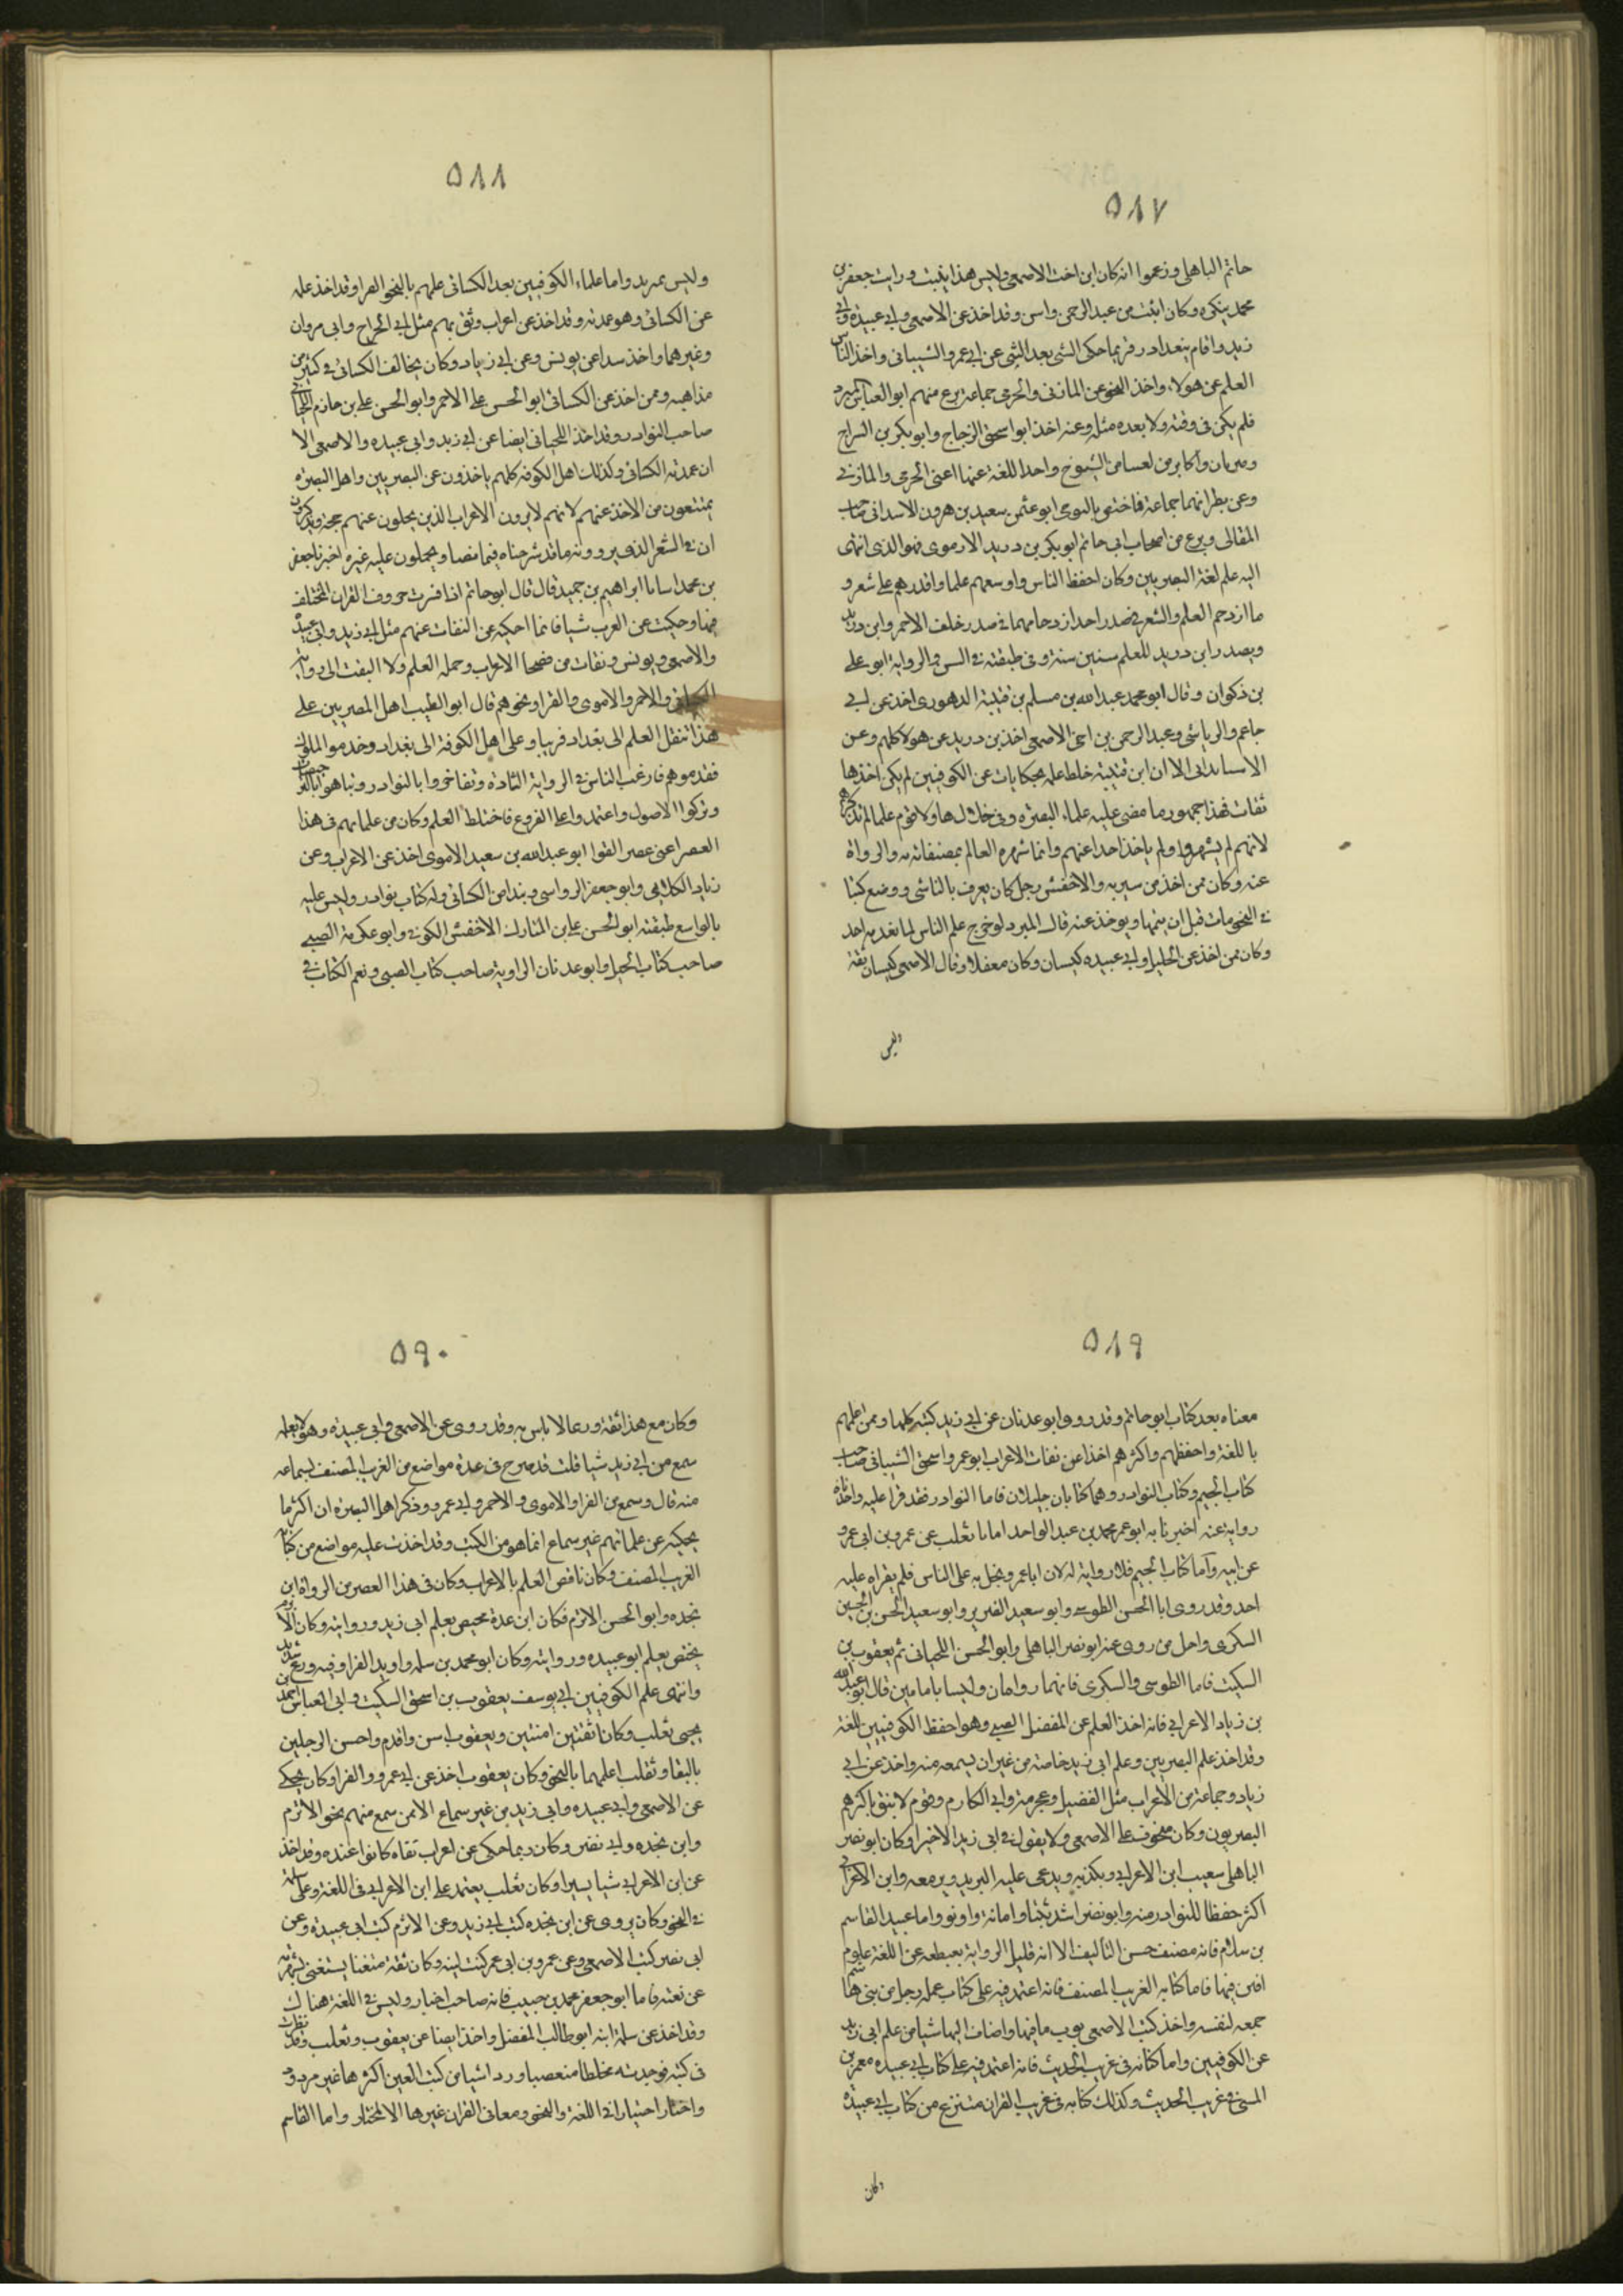 ٥٨٧
حاتم الباهلى وزعموا انه كان ابن اخت الاصمعى وليس هذا يثبت ورايت جعفر بن
محمد ينكره وكان اثبت من عبد الرحمن واسن وقد اخذ عن الاصمعى وابى عبيدة وابى
زيد واقام ببغداد فربما حكى الشى بعد الشى عن ابى عمرو الشيبانى واخذ الناس
العلم عن هولاء واخذ النحو عن المازنى والجرمى جماعة برع منهم ابو العباس المبرد
فلم يكن فى وقته ولا بعده مثله وعنه اخذ ابو اسحق الزجاج وابو بكر بن السراج
ومبرمان واكابر من الشيوخ واحد اللغة عنهما اعنى الجرمى والمازنى
وعن نظرائهما جماعة فاختص بالتوجى ابو عثمن سعيد بن هرون الاسدانى صاحب
المقالى وبرع من اصحاب ابى حاتم ابو بكر بن دريد الازموى فهو الذى انتهى
اليه علم لغة البصريين وكان احفظ الناس واوسعهم علما واقدرهم على شعر و
ما ازدحم العلم والشعر فى صدر احد ازدحامهما فى صدر خلف الاحمر وابن دريد
وبصدر ابن دريد للعلم ستين سنة وفى طبقته فى السن والرواية ابو على
بن ذكوان وقال ابو محمد عبد الله بن مسلم بن قتيبة الدهورى اخذ عن ابى
حاتم والرياشى وعبد الرحمن بن اخى الاصمعى اخذ بن دريد عن هولا كلهم وعن
الاسنانداى الا ان ابن قتيبة خلط علمه بحكايات عن الكوفيين لم يكن اخذها
ثقات فهذا جمهور ما مضى عليه علماء البصره وفى خلال هاولا قوم علما لم نذكرهم
لانهم لم يشهروا ولم ياخذ احدا عنهم وانما شهره العالم بمصنفاته والرواة
عنه وكان ممن اخذ من سيبويه والاخفش رجل كان يعرف بالناشى ووضع كتبا
فى النحو مات قبل ان يتمها ويوخذ عنه قال المبرد لو خرج علم الناس لما تقدمه احد
وكان ممن اخذ عن الخليل وابى عبيده كيسان وكان مغفلا وقال الاصمعى كيسان ثقة
وليس
٥٨٨
وليس بمريد واما علماء الكوفيين بعد الكسائى علمهم بالنحو الفرا وقد اخذ علمه
عن الكسائى وهو عمدته وقد اخذ عن اعراب وثق بهم مثل ابى الجراح وابى مروان
وغيرهما واخذ سدا عن يونس وعن ابى زياد وكان يخالف الكسائى فى كثير من
مذاهبه وممن اخذ عن الكسائى ابو الحسن على الاحمر وابو الحسن على بن حازم اللحيانى
صاحب النوادر وقد اخذ اللحيانى ايضا عن ابى زيد وابى عبيده والاصمعى الا
ان عمدته الكسائى وكذلك اهل الكوفه كلهم ياخذون عن البصريين واهل البصره
يمتنعون من الاخذ عنهم لانهم لا يرون الاعراب الذين يحكون عنهم حجة ويذكرون
ان فى الشعر الذى يروونه ما قد شرحناه فيما مضا ويحملون عليه غيره اخبرنا جعفر
بن محمد اسانا ابراهيم بن حميد قال قال ابو حاتم اذا فسرت حروف القران المختلف
فيها وحكيت عن العرب شيا فانما احكيه عن الثقات عنهم مثل ابى زيد وابى عبيدة
والاصمعى ويونس وثقات من فصحا الاعراب وحمله العلم ولا التفت الى رواية
الكسائى والاحمر والاموى والفرا ونحوهم قال ابو الطيب اهل المصريين على
هذا تنقل العلم الى بغداد قريبا وعلى اهل الكوفة الى بغداد وخدموا الملوك
فقدموهم فارغب الناس فى الرواية الشاذة وتفاخروا بالنوادر وتباهوا بالترخيصات
وتركوا الاصول واعتمدوا على الفروع فاختلط العلم وكان من علمائهم فى هذا
العصر اعنى عصر الفوا ابو عبد الله بن سعيد الاموى اخذ عن الاعراب وعن
زياد الكلابى وابو جعفر الرواسى ونبذا من الكسائى وله كتاب نوادر وليس عليه
بالواسع طبقته ابو الحسن على بن المبارك الاخفش الكوفى وابو عكرمة الضبى
صاحب كتاب الخيل وابو عدنان الراوية صاحب كتاب القسى ونعم الكتاب فى
٥٨٩
معناه بعد كتاب ابو حاتم وقد روى ابو عدنان عن ابى زيد كتبه كلها وممن اعلمهم
باللغة واحفظهم واكثرهم اخذا عن ثقات الاعراب ابو عمرو اسحق الشيبانى صاحب
كتاب الجيم وكتاب النوادر وهما كتابان جليلان فاما النوادر فقد قرا عليه واخذناه
رواية عنه اخبرنا به ابو عمر محمد بن عبد الواحد امانا ثعلب عن عمرو بن ابى عمرو
عن ابيه واما كتاب الجيم فلا رواية له لان ابا عمرو بخل به على الناس فلم يقراه عليه
احد وقد روى ابا الحسن الطوسى وابو سعيد الضرير وابو سعيد الحسن بن الحسين
السكرى واجل من روى عنه ابو نصر الباهلى وابو الحسن اللحيانى ثم يعقوب بن
السكيت فاما الطوسى والسكرى فانهما رواهان وليسا بامامين قال ابو عبد الله
بن زياد الاعرابى فانه اخذ العلم عن المفضل الضبى وهو احفظ الكوفيين للغة
وقد اخذ علم البصريين وعلم ابى زيد خاصة من غير ان يسمعه منه واخذ عن ابى
زياد وجماعة من الاعراب مثل الفضيل وعجرمة وابى المكارم وقوم لا يثق باكثرهم
البصريون وكان ينحرف على الاصمعى ولا يقول فى ابى زيد الاخيرا وكان ابو نصر
الباهلى سعيب ابن الاعرابى ويكذبه ويدعى عليه التزيد ويرمعه وابن الاعرابى
اكثر حفظا للنوادر منه وابو نصر اشد تثبتا وامانة واوثق واما عبيد القاسم
بن سلام فانه مصنف حسن التاليف الا انه قليل الرواية بعبطعه عن اللغة علوم
افتن فيها فاما كتابه الغريب المصنف فانه اعتمد فيه على كتاب عمله رجل من بنى هاشم
جمعه لنفسه واخذ كتب الاصمعى فبوب ما فيها واضاف اليها شيا من علم ابى زيد
عن الكوفيين واما كتابه فى غريب الحديث فانه اعتمد فيه على كتاب ابى عبيده معمر بن
المثنى فى غريب الحديث وكذلك كتابه فى غريب القران منتزع من كتاب ابى عبيدة
وكان
٥٩٠
وكان مع هذا ثقة ورعا لا باس به وقد روى عن الاصمعى وابى عبيده وهو لا يعلم
سمع من ابى زيد شيا قلت قد صرح فى عدة مواضع من الغريب المصنف بسماعه
منه قال وسمع من الفرا والاموى والاحمر وابى عمرو وذكر اهل البصره ان اكثر ما
يحكيه عن علمائهم غير سماع انما هو من الكتب وقد اخذت عليه مواضع من كتابه
الغريب المصنف وكان ناقص العلم بالاعراب وكان فى هذا العصر من الرواة ابن
نجده وابو الحسن الاثرم فكان ابن عدة يختص بعلم ابى زيد وروايته وكان الاثرم
يختص بعلم ابو عبيده وروايته وكان ابو محمد بن سلمه راويه الفرا وفيه ورع شديد
وانتهى علم الكوفيين ابى يوسف يعقوب بن اسحق السكيت وابى العباس احمد بن
يحيى ثعلب وكانا ثقتين امنتين ويعقوب اسن واقدم واحسن الرجلين
بالبقا وثعلب اعلمهما بالنحو وكان يعقوب اخذ عن ابى عمرو والفرا وكان يحكى
عن الاصمعى وابى عبيده وابى زيد من غير سماع الا ممن سمع منهم نحو الاثرم
وابن نجده وابى نصر وكان ربما حكى عن اعراب ثقاه كانوا عنده وقد اخذ
عن ابن الاعرابى شيا يسيرا وكان ثعلب يعتمد على ابن الاعرابى فى اللغة وعلى سلمة
فى النحو وكان يروى عن ابن نجده كتب ابى زيد وعن الاثرم كتب ابى عبيدة وعن
ابى نصر كتب الاصمعى وعن عمرو بن ابى عمر كتب ابيه وكان ثقة متقنا يستغنى بشهرته
عن نعته فاما ابو جعفر محمد بن حبيب فانه صاحب اخبار وليس فى اللغة هناك
وقد اخذ عن سلمة ابنه ابو طالب المفضل واخذ ايضا عن يعقوب وثعلب وقد نظرت
فى كتبه فوجدته مخلطا متعصبا ورد اشيا من كتب العين اكثرها غير مردود
واختار اختيارا فى اللغة والنحو ومعانى القران غيرها الا المختار واما القاسم